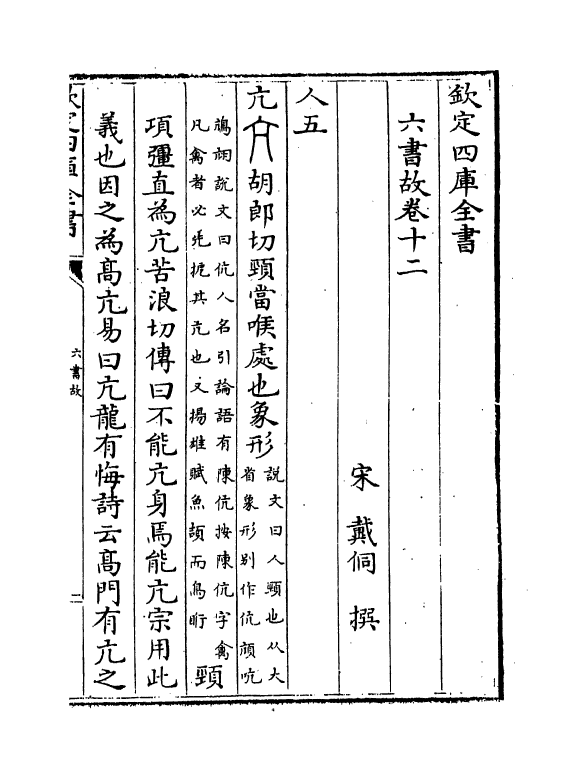 欽定四庫全書
六書故卷十二
宋 戴侗 撰
人五
亢胡郎切頸當喉處也象形說文曰人頸也从大省象形别作伉頏吭
鴋翃說文曰伉人名引論語有陳伉按陳伉字禽凡禽者必先扼其亢也又揚雄賦魚頡而鳥䀪頸
項彊直為亢苦浪切傳曰不能亢身焉能亢宗用此
義也因之為高亢易曰亢龍有悔詩云高門有亢之
欽定四庫全書
六書故